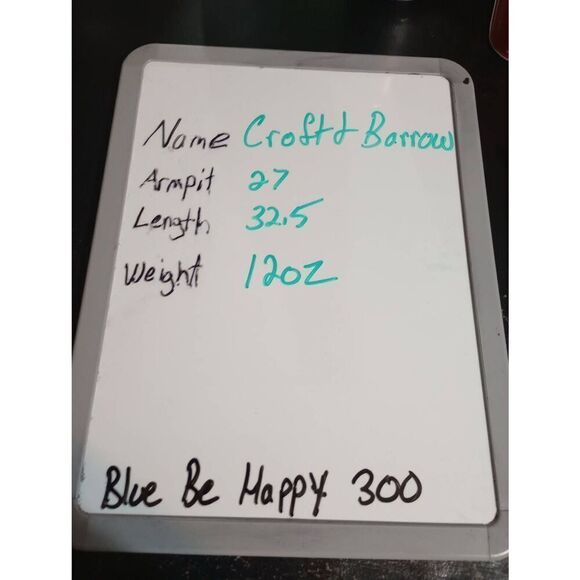 Name Croft & Barrow
Armpit 27
Length 32.5
Weight 12oz
Blue Be Happy 300